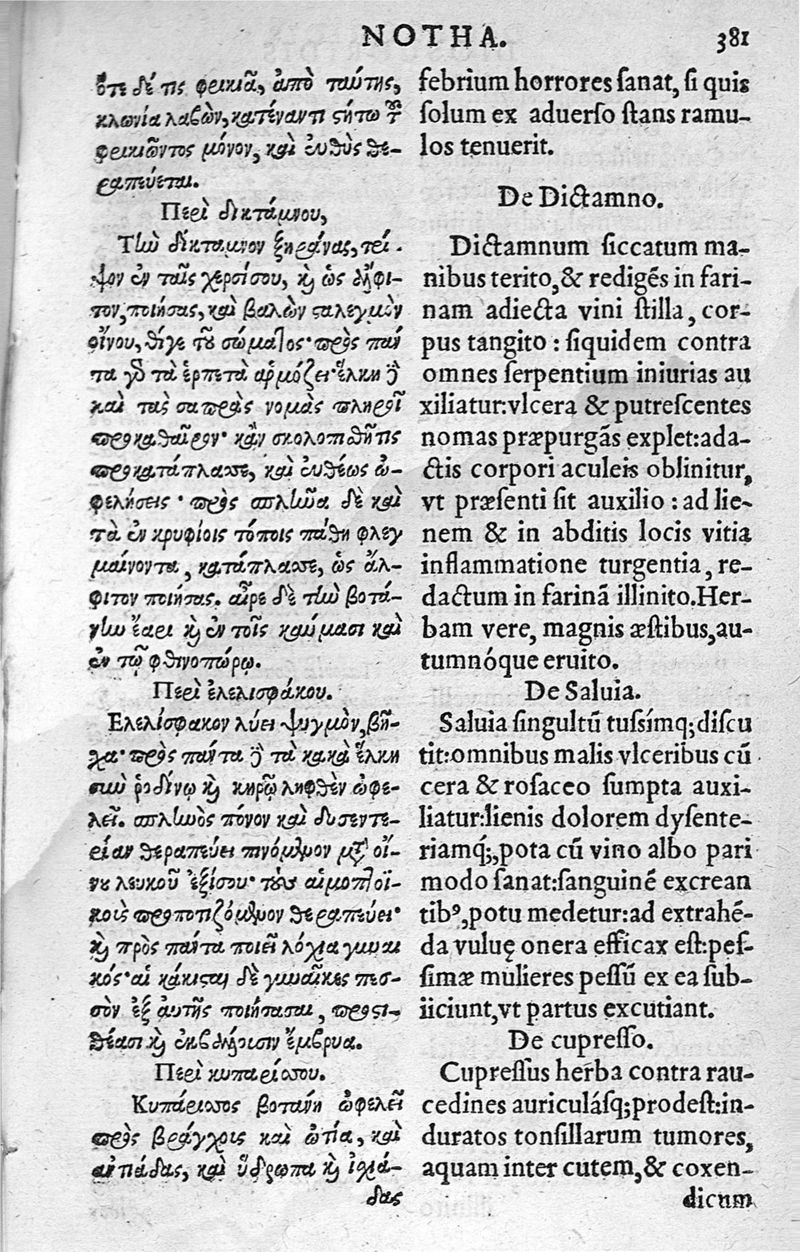 NOTHA. 381
ὅτε δέ τις φρικιᾶ, ἀπὸ ταύτης,
κλωνία λαβὼν, κατέναντι ςήτω τοῦ
φρικιῶντος μόνον, καὶ ἐυθὺς θε-
ραπεύεται.
Περὶ δικτάμνου,
Τὴν δίκταμνον ξηράνας, τεί-
ψον ἐν ταῖς χερσίσου, κỳ ὡς ἄλφι-
τον, ποιήσας, καὶ βαλὼν ςαλεγμὸν
οἴνου, θίγε τοῦ σώματος· πρὸς παν
τα γὰρ τὰ ἑρπετὰ ἁρμόζει· ἕλκη δὲ
καὶ τὰς σαπρὰς νομὰς πληροῖ
προκαθαῖρον· κἂν σκολοπιθῆτις
προκατάπλασσε, καὶ ἐυθέως ὠ-
φελήσεις· πρὸς σπλῆνα δὲ καὶ
τὰ ἐν κρυφίοις τόποις πάθη φλεγ
μαίνοντα, κατάπλασσε, ὡς ἄλ-
φιτον ποιήσας. αἶρε δὲ τὴν βοτά-
νην ἔαρι καὶ ἐν τοῖς καύμασι καὶ
ἐν τῷ φθινοπώρῳ.
Περὶ ἐλελισφάκου.
Ελελίσφακον λύει ψυγμὸν, βῆ-
χα· πρὸς πάντα δὲ τὰ κακὰ ἕλκη
σὺν ῥοδίνῳ καὶ κηρῷ ληφθὲν ὠφε-
λεῖ. σπληνὸς πόνον καὶ δυσεντε-
ρίαν θεραπεύει πινόμενον μετ' οἴ-
νου λευκοῦ ἐξίσου· τοὺς αἱμοπτοϊ-
κοὺς προποτιζόμενον θεραπεύει·
καὶ πρὸς πάντα ποιεῖ λόχια γυναι
κός· αἱ κάκισται δὲ γυναῖκες πεσ-
σὸν ἐξ αὐτῆς ποιήσασαι, προςι-
θέασι καὶ ἐκβάλλουσιν ἔμβρυα.
Περὶ κυπαρίσσου.
Κυπάρισσος βοτάνη ὠφελεῖ
πρὸς βράγχους καὶ ὠτία, καὶ
ἀντιάδας, καὶ ὕδρωπα καὶ ἰσχιά-
δας
febrium horrores ſanat, ſi quis
ſolum ex aduerſo ſtans ramu-
los tenuerit.
De Dictamno.
Dictamnum ſiccatum ma-
nibus terito, & redigēs in fari-
nam adiecta vini ſtilla, cor-
pus tangito: ſiquidem contra
omnes ſerpentium iniurias au
xiliatur:vlcera & putreſcentes
nomas præpurgās explet:ada-
ctis corpori aculeis oblinitur,
vt præſenti ſit auxilio: ad lie-
nem & in abditis locis vitia
inflammatione turgentia, re-
dactum in farinā illinito. Her-
bam vere, magnis æſtibus, au-
tumnóque eruito.
De Saluia.
Saluia ſingultū tuſsímq; diſcu
tit:omnibus malis vlceribus cū
cera & roſaceo ſumpta auxi-
liatur:lienis dolorem dyſente-
riamq́;, pota cū vino albo pari
modo ſanat:ſanguinē excrean
tibꝰ, potu medetur:ad extrahē-
da vuluę onera efficax eſt:peſ-
ſimæ mulieres peſſū ex ea ſub-
iiciunt, vt partus excutiant.
De cupreſſo.
Cupreſſus herba contra rau-
cedines auriculáſq; prodeſt:in-
duratos tonſillarum tumores,
aquam inter cutem, & coxen-
dicum